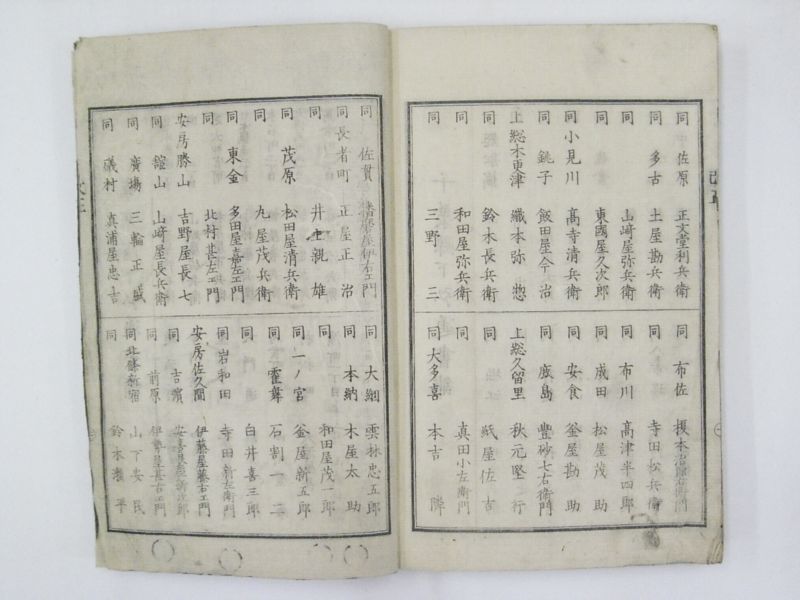 同 佐原 正文堂利兵衛
同 多古 土屋勘兵衛
同 山﨑屋弥兵衛
同 東國屋久次郎
同 小見川 髙寺清兵衛
同 銚子 飯田屋 治
上総木更津 織本弥惣
同 鈴木長兵衛
同 和田屋弥兵衛
同 三野 三
同 布佐 榎本
同 寺田松兵衛
同 布川 髙津半四郎
同 成田 松屋茂助
同 安食 釜屋勘助
同 廣島 豊砂七右衛門
上総久留里 秋元堅行
同 紙屋佐吉
同 真田小左衛門
同 大多喜 本吉隣
同 佐貫 播磨屋伊右エ門
同 長者町 正屋正治
同 井上親雄
同 茂原 松田屋清兵衛
同 丸屋茂兵衛
同 東金 多田屋嘉左エ門
同 北村甚左エ門
安房勝山 吉野屋長七
同 舘山 山﨑屋長兵衛
同 廣塲 三輪正
同 礒村 真浦屋忠吉
同 大網 雲林忠五郎
同 本納 木屋太助
同 和田屋茂一郎
同 一ノ宮 釜屋新五郎
同 石割一二
同 白井喜三郎
同 岩和田 寺田新左衛門
安房佐久間 伊藤屋藤右エ門
同 吉濱
同 前原 伊勢屋甚右エ門
同 北條新宿 山下安民
同 鈴木 平